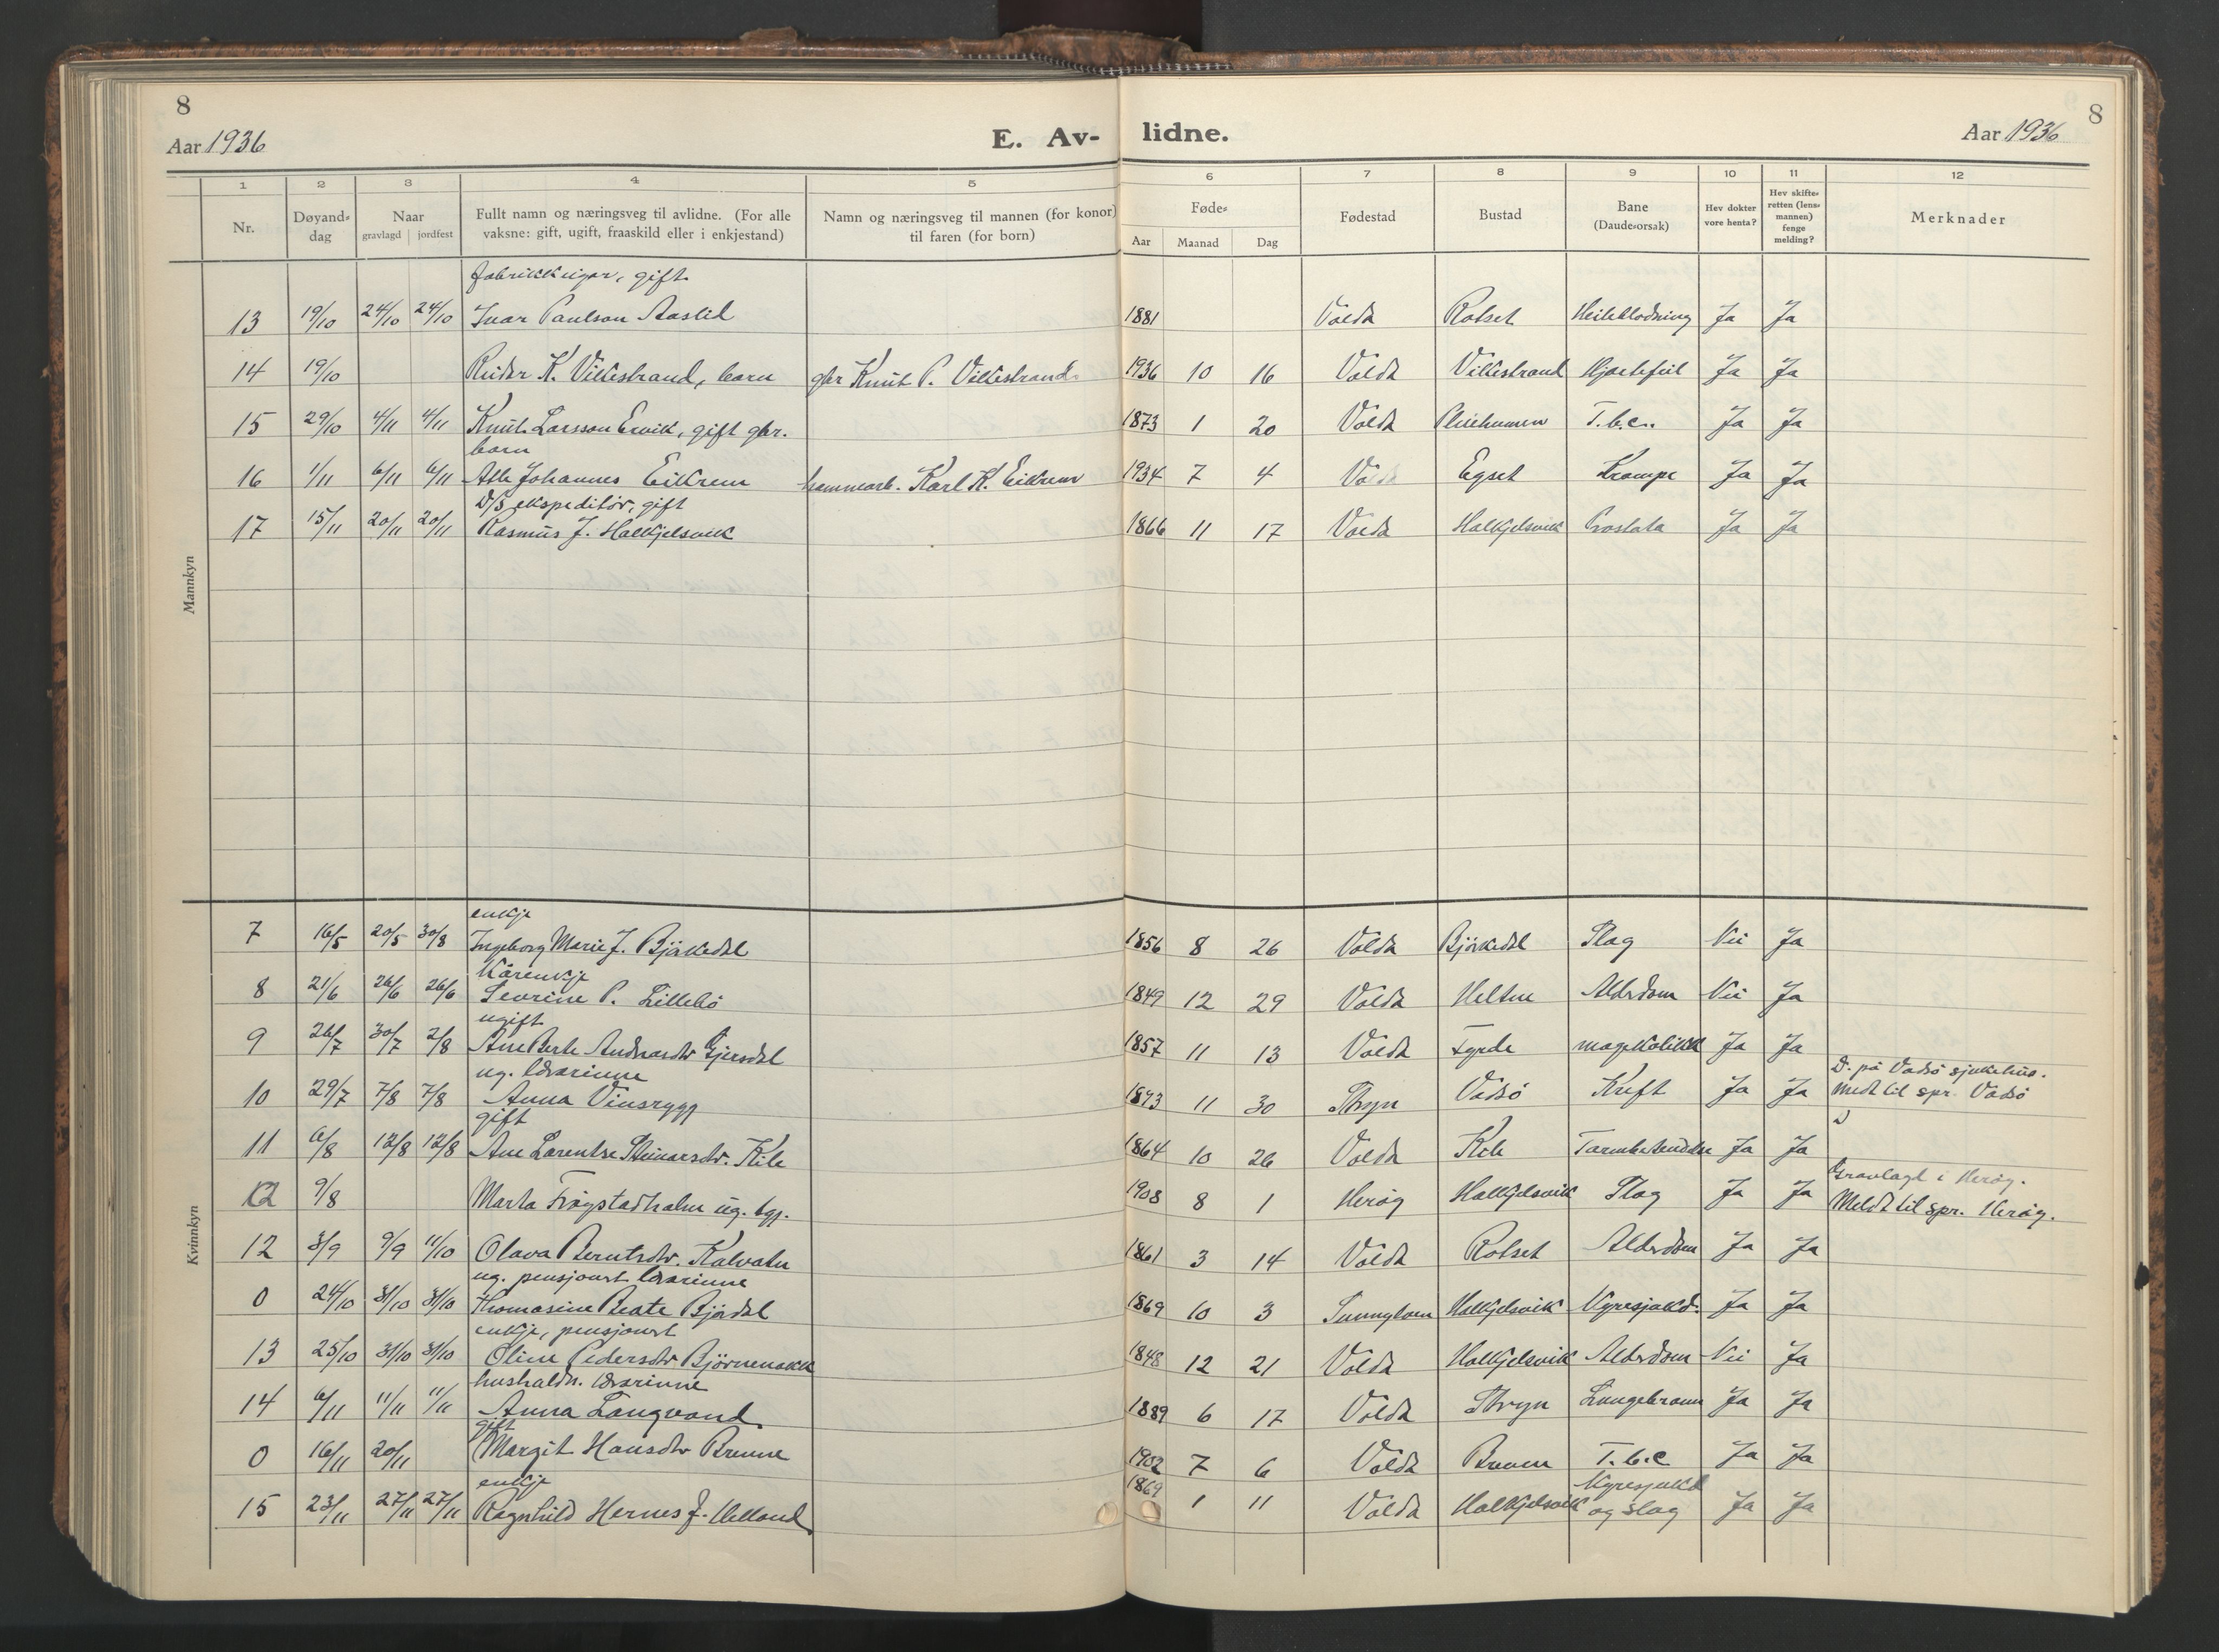 8
Aar 1936
E. Av-
lidne.
Aar 1936
8
1 2 3 4 5 6 7 8 9 10 11 12
Nr.
Døyand-
dag
Naar
gravlagd jordfest
Fullt namn og næringsveg til avlidne. (For alle
vaksne: gift, ugift, fraaskild eller i enkjestand)
Namn og næringsveg til mannen (for konor)
til faren (for born)
Føde-
Aar Maanad Dag
Fødestad
Bustad
Bane
(Daude-orsak)
Hev dokter
vore henta?
Hev skifte-
retten (lens-
mannen)
fenge
melding?
Merknader
Mannkyn
fabrikkeigar, gift
13 19/10 24/10 24/10 Ivar Paulson Aaslid 1881 Volda Rotset Heileblødning Ja Ja
14 19/10 Reidar K. Vikestrand, barn gbr Knut P. Vikestrand 1936 10 16 Volda Vikestrand Hjartefeil Ja Ja
15 29/10 4/11 4/11 Knut Larsson Ervik, gift gbr. 1873 1 20 Volda T.b.c. Ja Ja
barn
16 1/11 6/11 6/11 Atle Johannes Eikrem Karl K. Eikrem 1934 7 4 Volda Egset Krampe Ja Ja
D/S ekspeditör, gift
17 15/11 20/11 20/11 Rasmus J. Halkjelsvik 1866 11 17 Volda Halkjelsvik Prostata Ja Ja
Kvinnkyn
enkje
7 16/5 20/5 30/8 Ingeborg Marie J. Björkedal 1856 8 26 Volda Björkedal Slag Nei Ja
Kårenkje
8 21/6 26/6 26/6 Sevrine P. Lillebö 1849 12 29 Volda Heltne Alderdom Nei Ja
ugift
9 26/7 30/7 2/8 Ane Berte Andreasdtr Gjersdal 1857 11 13 Volda Fyrde magekolikk Ja Ja
ug. lærarinne
D. på Vadsö sjukehus.
10 29/7 7/8 7/8 Anna Vinsrygg 1893 11 30 Stryn Vadsö Kreft Ja Ja Meldt til spr. Vadsö
gift
11 6/8 12/8 12/8 Ane Larentse Steinarsdtr. Kile 1864 10 26 Volda Kile Ja Ja
Gravlagt i Heröy.
12 9/8 Marta Frøystadholm ug. 1908 8 1 Heröy Halkjelsvik Slag Ja Ja Meldt til spr. Heröy.
12 3/9 9/9 11/10 Olava Berntsdtr. Kalvatn 1861 3 14 Volda Rotset Alderdom Ja Ja
ug. pensjonert lærarinne
0 24/10 31/10 31/10 Thomasine Beate Björdal 1869 10 3 Halkjelsvik Nyresjukd. Ja Ja
enkje, pensjonert
13 25/10 31/10 31/10 Oline Pedersdtr Björnenakk 1848 12 21 Volda Halkjelsvik Alderdom Nei Ja
hushaldn. lærarinne
14 6/11 11/11 11/11 Anna Langvand 1889 6 17 Volda Stryn Lungebrann Ja Ja
gift
0 16/11 20/11 Margit Hansdtr Brune 1902 7 6 Volda Brunen T.b.c Ja Ja
enkje
Nyresjukd
15 23/11 27/11 27/11 Ragnhild Hernes f. Helland 1869 1 11 Volda Halkjelsvik og slag Ja Ja